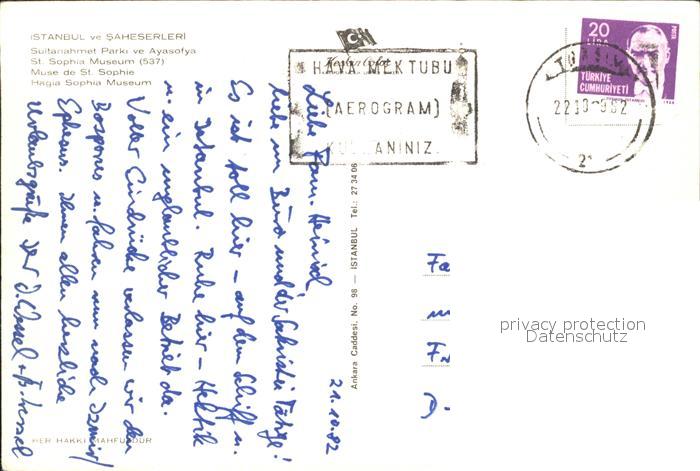 İSTANBUL ve ŞAHESERLERİ
Sultanahmet Parkı ve Ayasofya
St. Sophia Museum (537)
Muse de St. Sophie
Hagia Sophia Museum
HAVA MEKTUBU
(AEROGRAM)
KULLANINIZ.
20
LİRA
TÜRKİYE
CUMHURİYETİ
POSTA
21.10.82
Liebe Fam. Heinisch,
liebe im Büro und der
Es ist toll hier – auf dem Schiff u.
in Istanbul. Ruhe hier – Hektik
u. ein unglaublicher Betrieb da.
Voller Eindrücke verlassen wir den
Bosporus u. fahren nun nach Izmir/
Ephesus. Ihnen allen herzliche
Urlaubsgrüße Der D. Wessel
Ankara Caddesi, No. 98 — İSTANBUL Tel.: 27 34 06
Fa
Fr
privacy protection
Datenschutz
HER HAKKI MAHFUZDUR